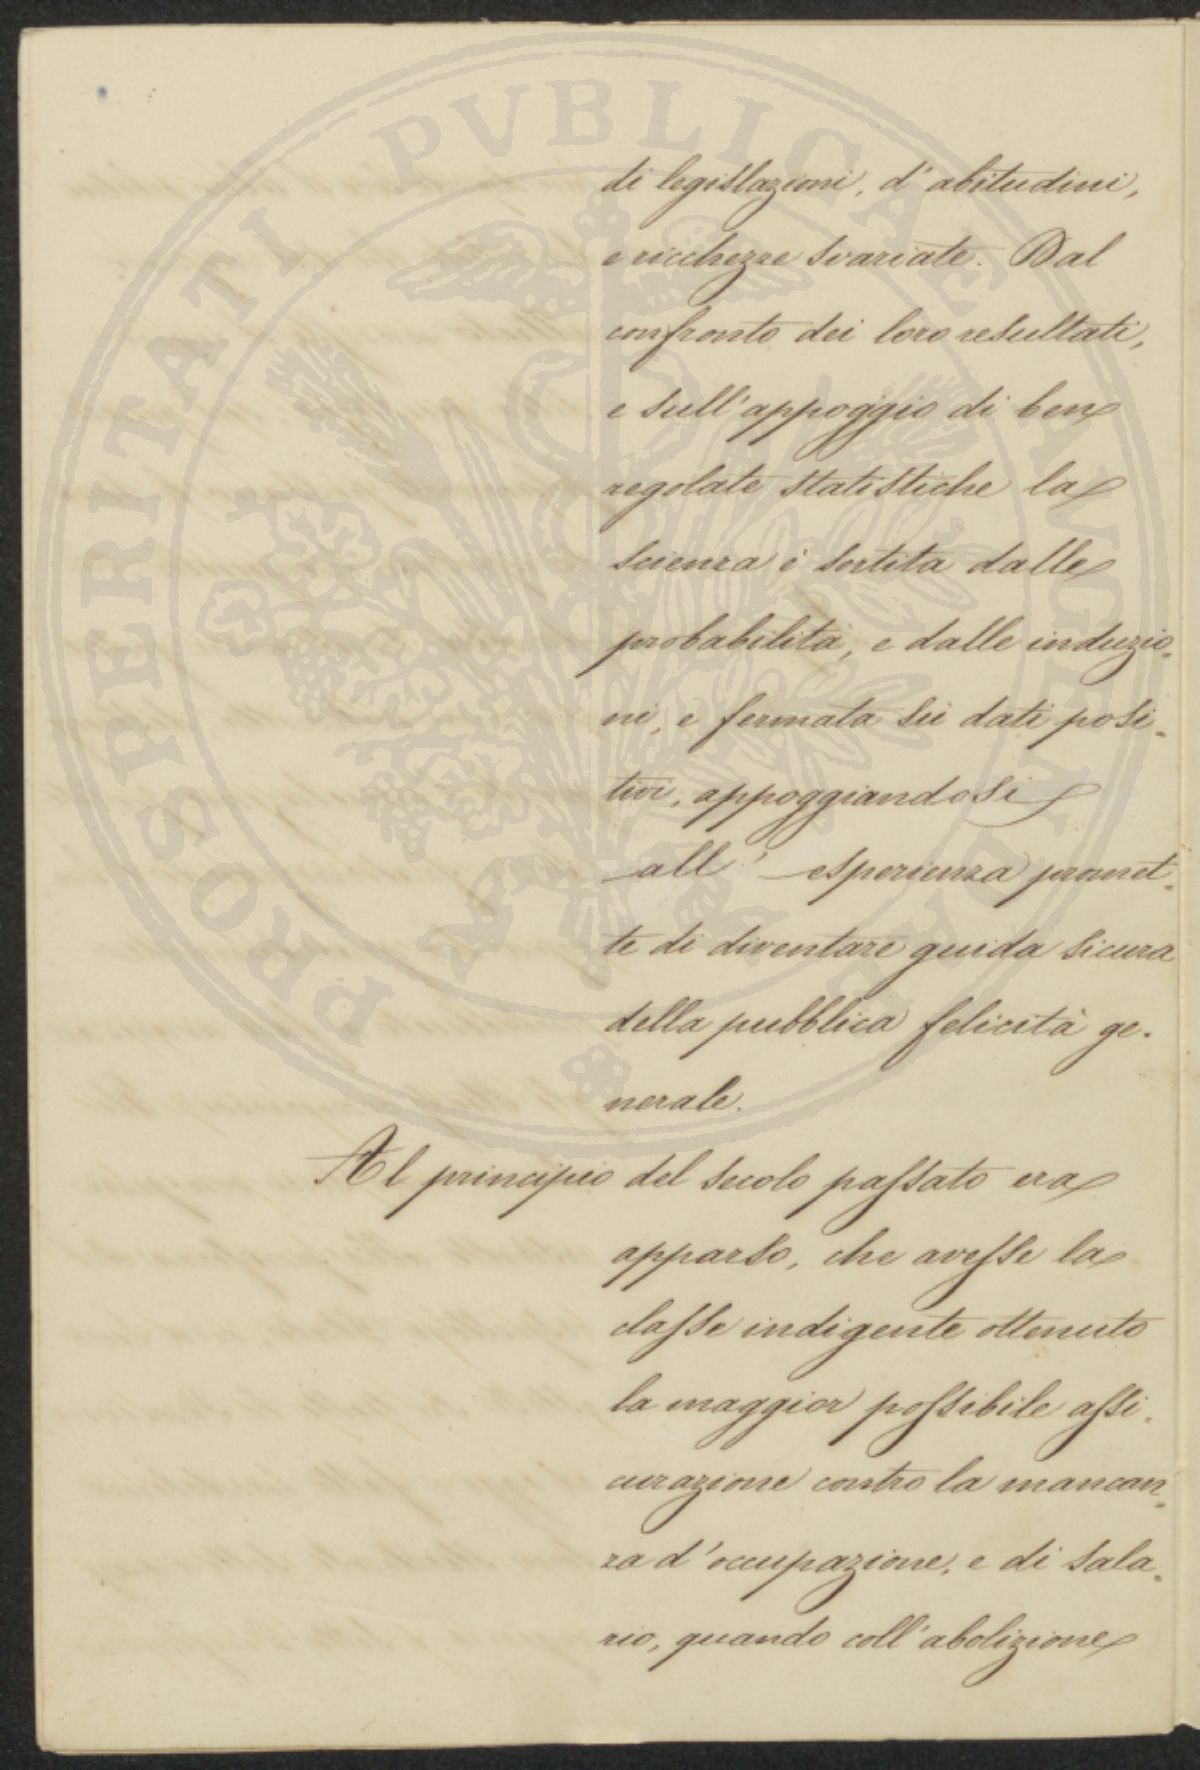 di legislazioni, d'abitudini,
e ricchezze svariate. Dal
confronto dei loro resultati,
e sull'appoggio di ben
regolate statistiche la
scienza é sortita dalle
probabilità, e dalle induzio=
ni, e fermata sù dati posi=
tivi, appoggiandosi
all'esperienza promet=
te di diventare guida sicura
della pubblica felicità ge=
nerale.
Al principio del secolo passato era
apparso, che avesse la
classe indigente ottenuto
la maggior possibile assi=
curazione contro la mancan=
za d'occupazione, e di sala=
rio, quando coll'abolizione
PROSPERITATI PUBLICAE AUGENDAE